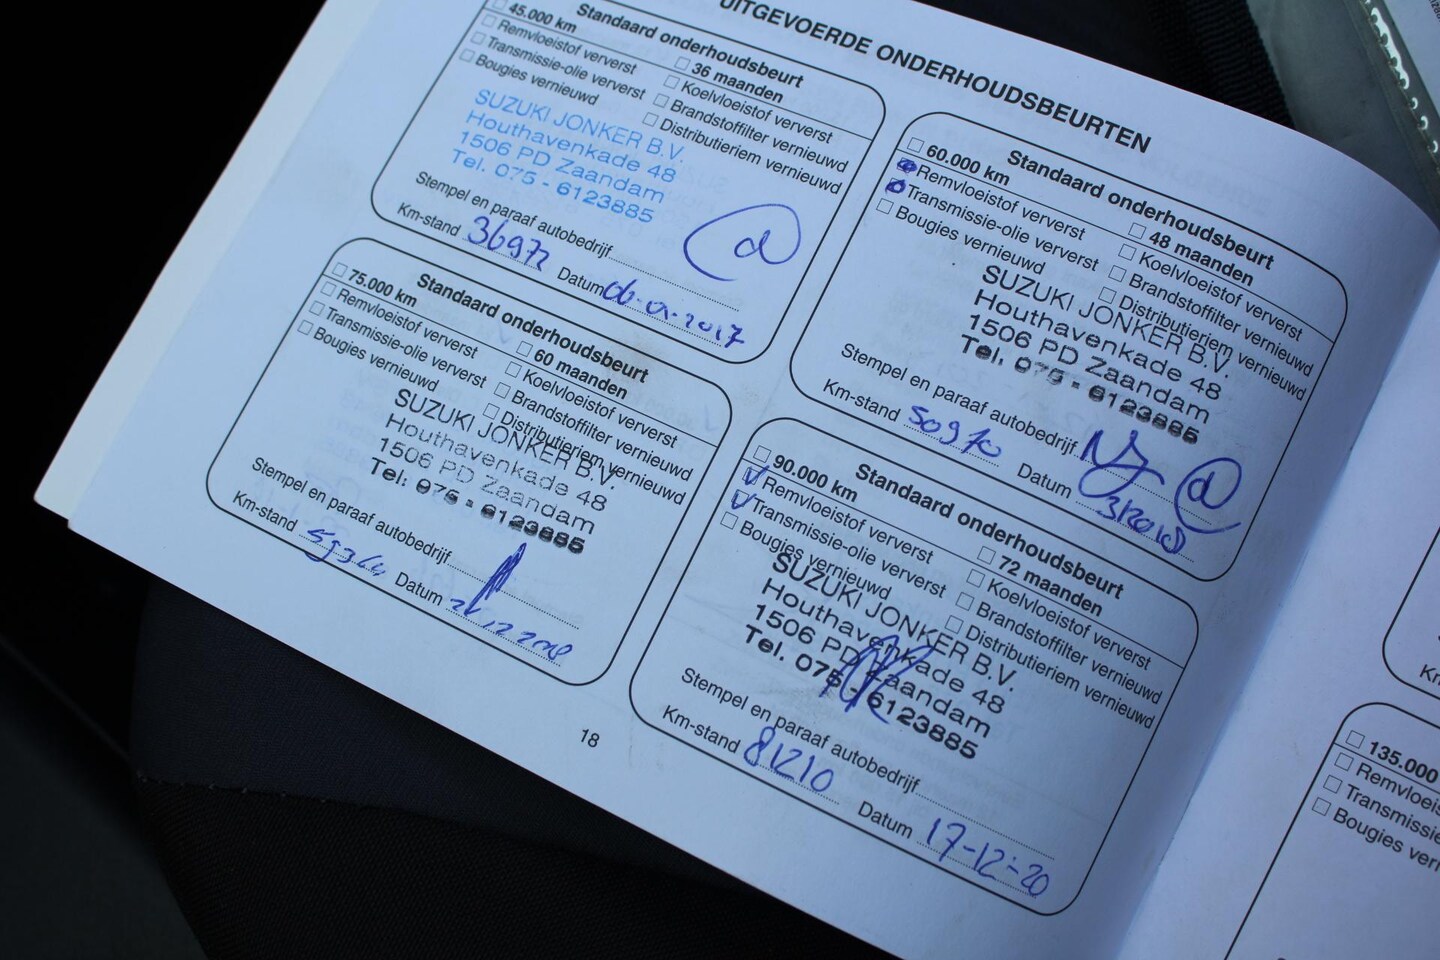 UITGEVOERDE ONDERHOUDSBEURTEN
45.000 km
Standaard onderhoudsbeurt
36 maanden
Remvloeistof ververst
Koelvloeistof ververst
Transmissie-olie ververst
Brandstoffilter vernieuwd
Bougies vernieuwd
Distributieriem vernieuwd
SUZUKI JONKER B.V.
Houthavenkade 48
1506 PD Zaandam
Tel. 075 - 6123885
Stempel en paraaf autobedrijf
Km-stand 36972 Datum 06-01-2017
60.000 km
Standaard onderhoudsbeurt
48 maanden
Remvloeistof ververst
Koelvloeistof ververst
Transmissie-olie ververst
Brandstoffilter vernieuwd
Bougies vernieuwd
Distributieriem vernieuwd
SUZUKI JONKER B.V.
Houthavenkade 48
1506 PD Zaandam
Tel. 075 - 6123885
Stempel en paraaf autobedrijf
Km-stand 50970 Datum
75.000 km
Standaard onderhoudsbeurt
60 maanden
Remvloeistof ververst
Koelvloeistof ververst
Transmissie-olie ververst
Brandstoffilter vernieuwd
Bougies vernieuwd
Distributieriem vernieuwd
SUZUKI JONKER B.V.
Houthavenkade 48
1506 PD Zaandam
Tel. 075 - 6123885
Stempel en paraaf autobedrijf
Km-stand Datum
90.000 km
Standaard onderhoudsbeurt
72 maanden
Remvloeistof ververst
Koelvloeistof ververst
Transmissie-olie ververst
Brandstoffilter vernieuwd
Bougies vernieuwd
Distributieriem vernieuwd
SUZUKI JONKER B.V.
Houthavenkade 48
1506 PD Zaandam
Tel. 075 - 6123885
Stempel en paraaf autobedrijf
Km-stand 81210 Datum 17-12-20
18
135.000
Remvloeis
Transmissie
Bougies ver